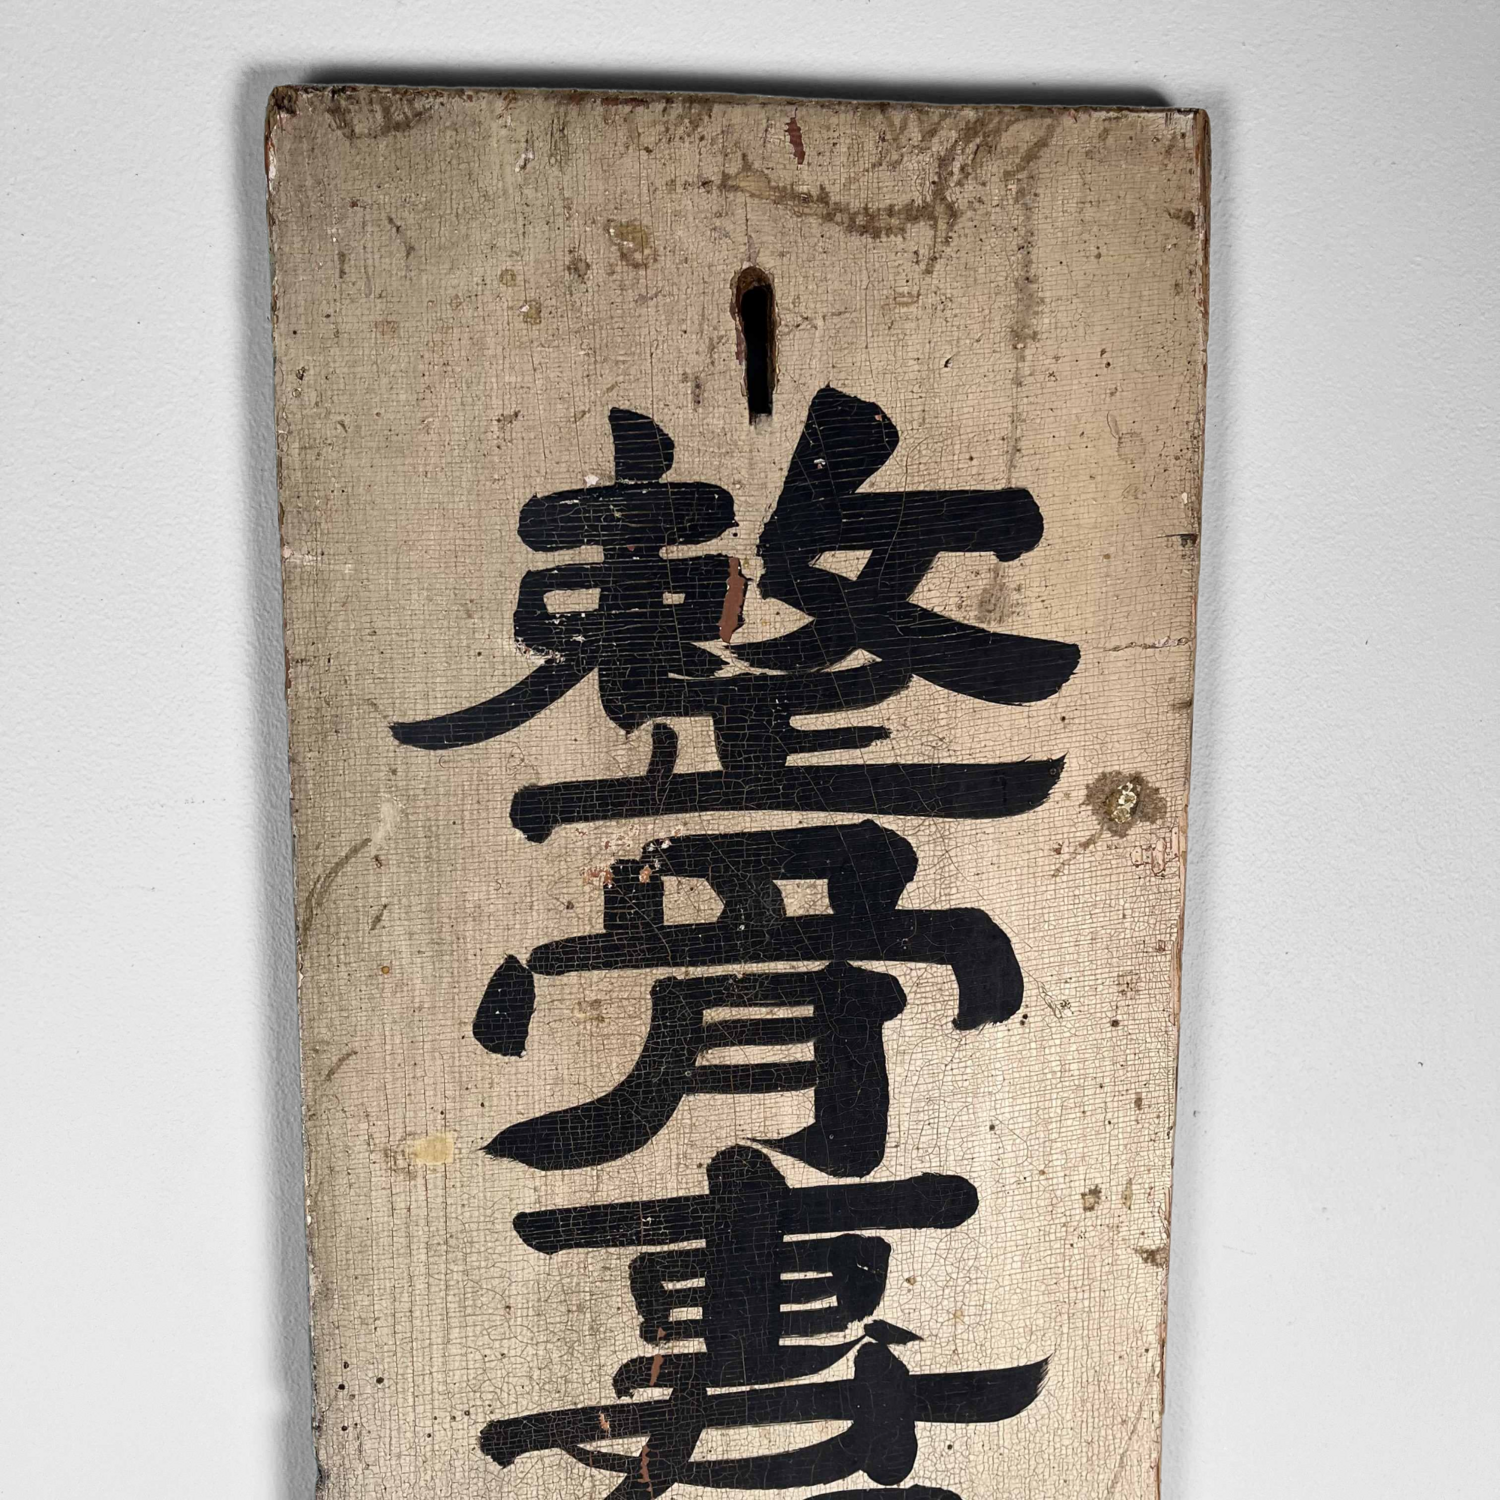 整骨專